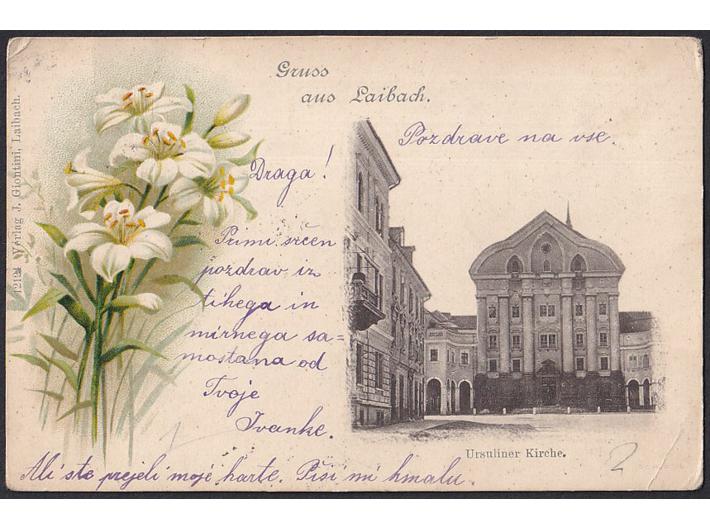 Gruss
aus Laibach.
Pozdrave na vse.
Draga!
Primi srčen
pozdrav iz
tihega in
mirnega sa=
mostana od
Tvoje
Ivanke.
Ursuliner Kirche.
Ali ste prejeli moje karte. Piši mi kmalu.
2
Verlag J. Giontini, Laibach.